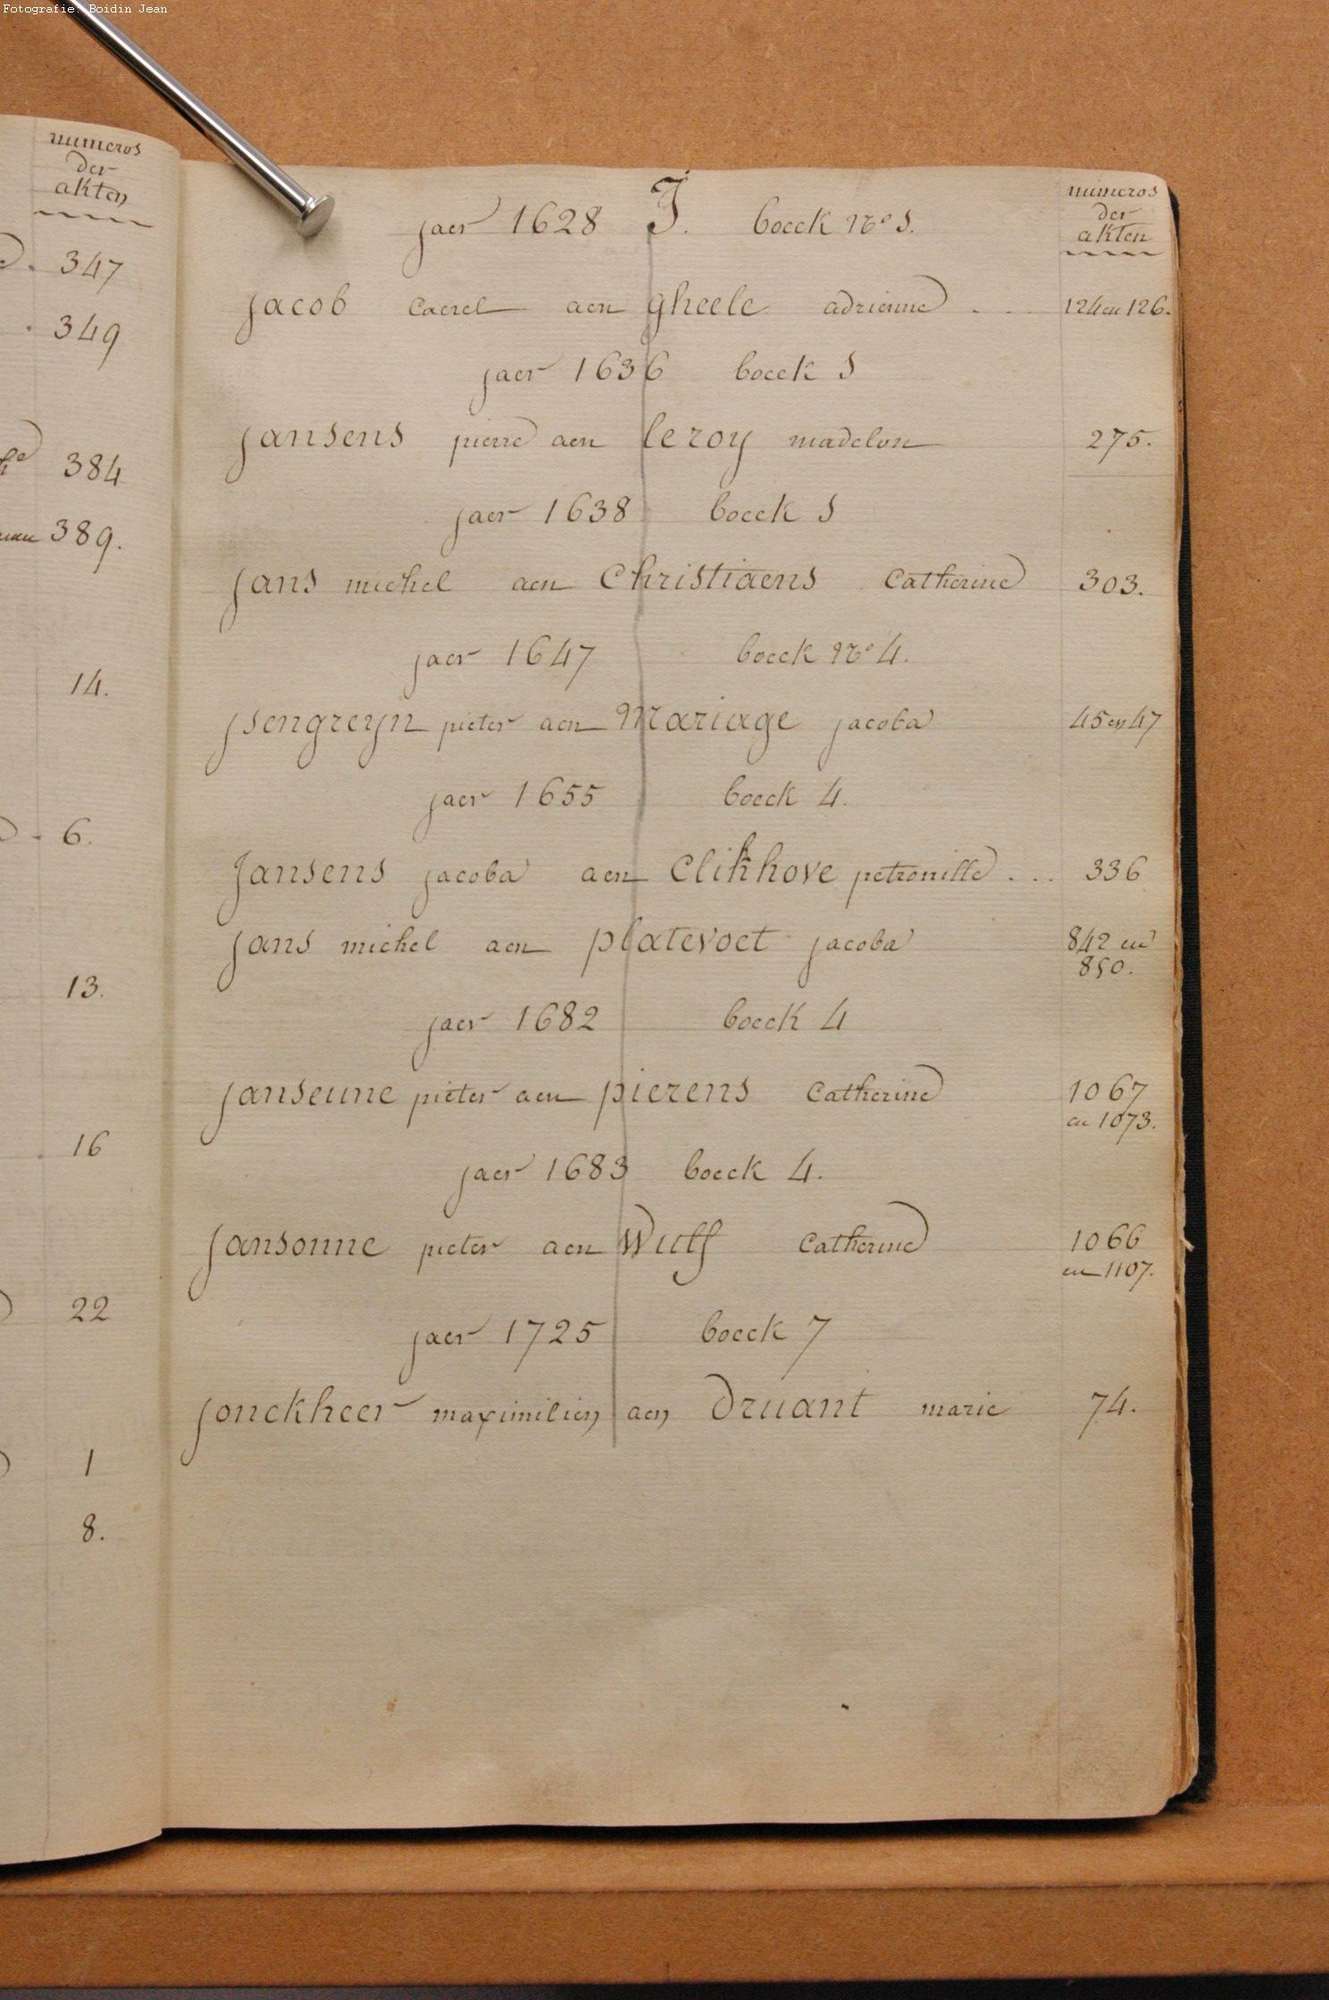 Fotografie: Boidin Jean
numeros
der
akten
347
349
384
389.
14.
6.
13.
16
22
1
8.
J.
jaer 1628 boeck No 1.
numeros
der
akten
jacob Caerel aen gheele adrienne . . . 124 en 126.
jaer 1636 boeck 1
jansens pierre aen leroy madelon 275.
jaer 1638 boeck 1
jans michel aen Christiaens Catherine 303.
jaer 1647 boeck No 4.
jsengreyn pieter aen Mariage jacoba 45 en 47
jaer 1655 boeck 4.
Jansens jacoba aen Clikhove petronille . . . 336
jans michel aen platevoet jacoba 842 en
850.
jaer 1682 boeck 4
janseune pieter aen pierens Catherine 1067
en 1073.
jaer 1683 boeck 4.
jansonne pieter aen Wulf Catherine 1066
en 1107.
jaer 1725 boeck 7
jonckheer maximilien aen Druant marie 74.